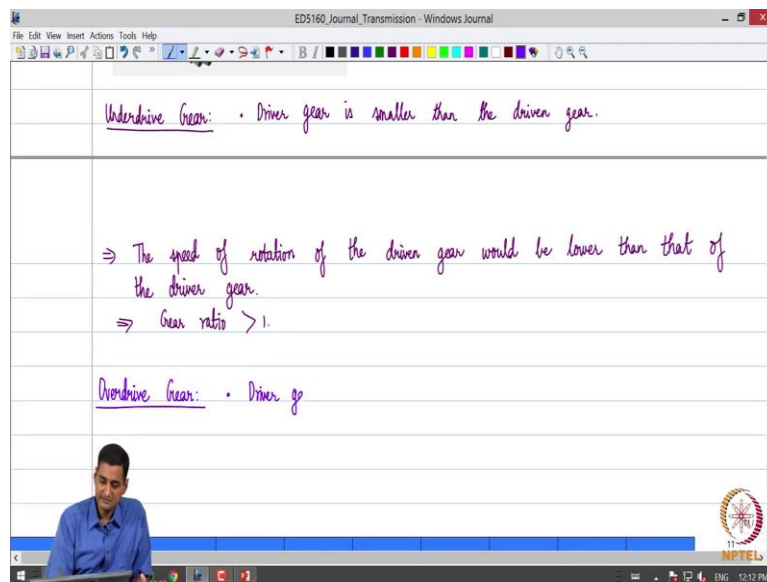 ED5160_Journal_Transmission - Windows Journal
File Edit View Insert Actions Tools Help
B I
Underdrive Gear: • Driver gear is smaller than the driven gear.
⇒ The speed of rotation of the driven gear would be lower than that of
the driver gear.
⇒ Gear ratio > 1.
Overdrive Gear: • Driver ge
11
NPTEL
ENG 12:12 PM